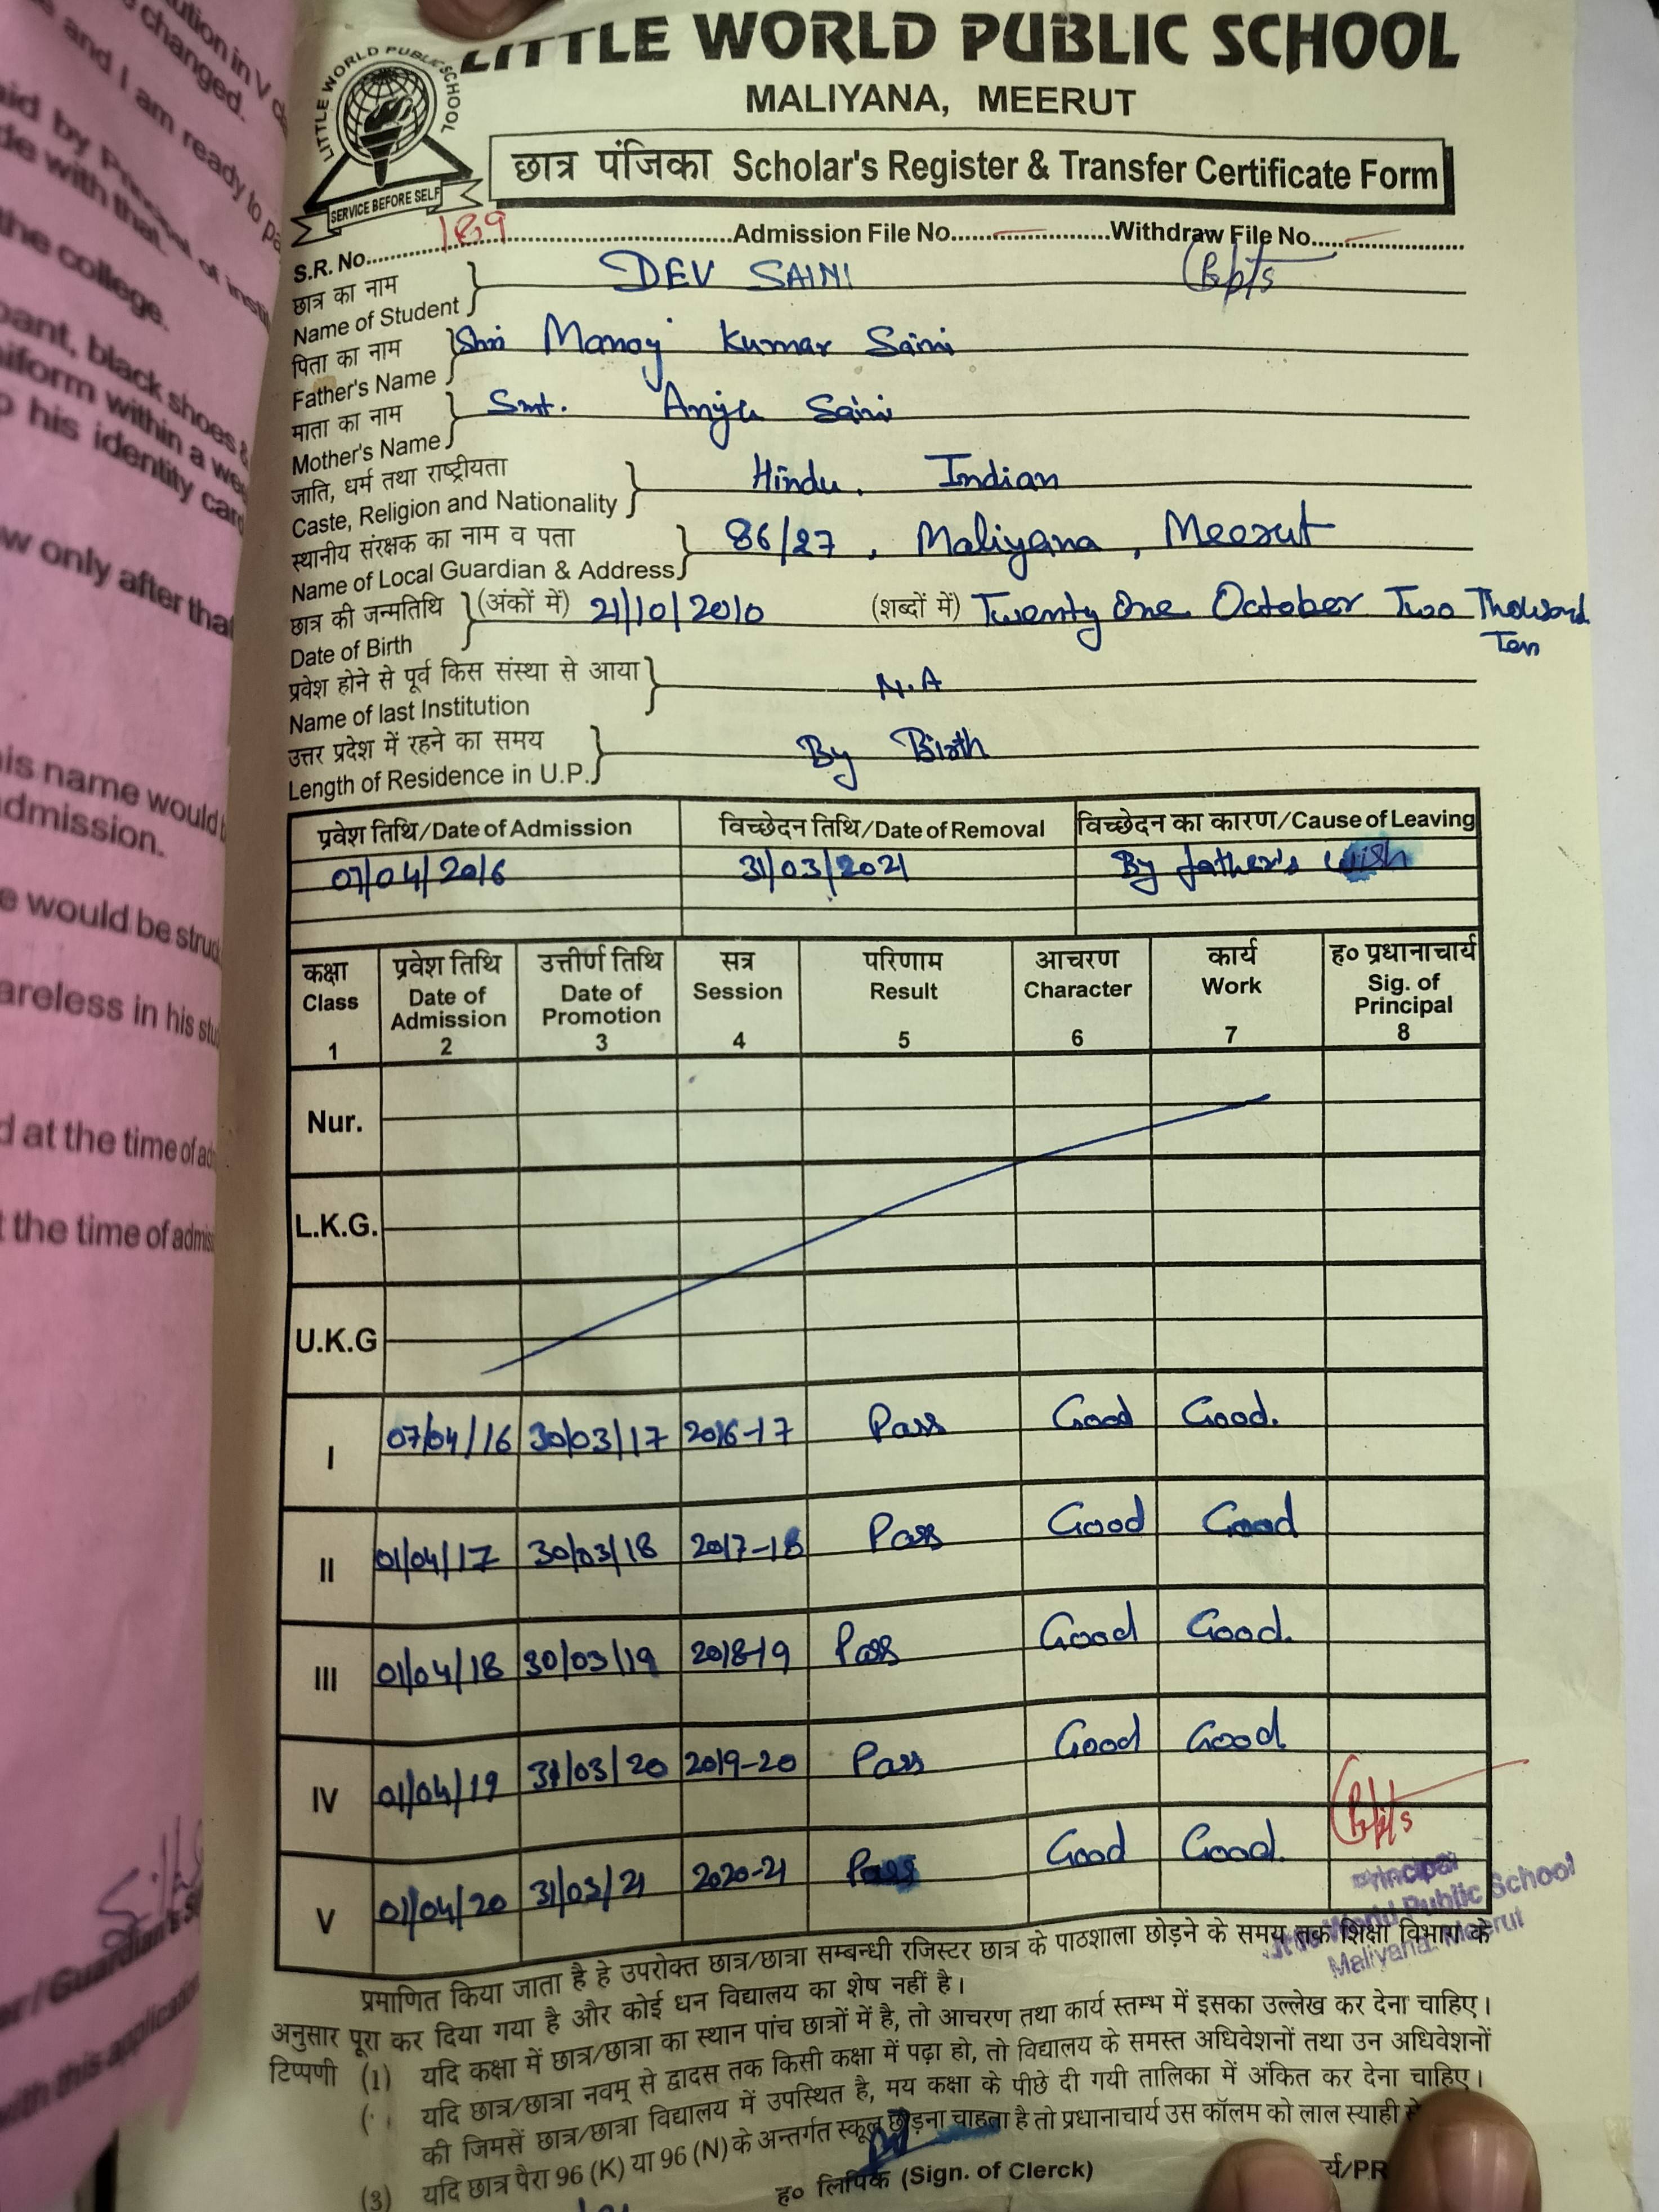 LITTLE WORLD PUBLIC SCHOOL
MALIYANA, MEERUT
LITTLE WORLD PUBLIC SCHOOL
SERVICE BEFORE SELF
छात्र पंजिका Scholar's Register & Transfer Certificate Form
S.R. No. 189 Admission File No. Withdraw File No.
छात्र का नाम
Name of Student DEV SAINI
पिता का नाम
Father's Name Shri Manoj Kumar Saini
माता का नाम
Mother's Name Smt. Anju Saini
जाति, धर्म तथा राष्ट्रीयता
Caste, Religion and Nationality Hindu, Indian
स्थानीय संरक्षक का नाम व पता
Name of Local Guardian & Address 86/27, Maliyana, Meerut
छात्र की जन्मतिथि (अंकों में) 21/10/2010 (शब्दों में) Twenty One October Two Thousand Ten
Date of Birth
प्रवेश होने से पूर्व किस संस्था से आया
Name of last Institution N.A
उत्तर प्रदेश में रहने का समय
Length of Residence in U.P. By Birth
प्रवेश तिथि/Date of Admission विच्छेदन तिथि/Date of Removal विच्छेदन का कारण/Cause of Leaving
07/04/2016 31/03/2021 By father's wish
कक्षा प्रवेश तिथि उत्तीर्ण तिथि सत्र परिणाम आचरण कार्य ह० प्रधानाचार्य
Class Date of Admission Date of Promotion Session Result Character Work Sig. of Principal
1 2 3 4 5 6 7 8
Nur.
L.K.G.
U.K.G
I 07/04/16 30/03/17 2016-17 Pass Good Good.
II 01/04/17 30/03/18 2017-18 Pass Good Good
III 01/04/18 30/03/19 2018-19 Pass Good Good.
IV 01/04/19 31/03/20 2019-20 Pass Good Good
V 01/04/20 31/03/21 2020-21 Pass Good Good.
Principal
World Public School
Maliyana, Meerut
प्रमाणित किया जाता है हे उपरोक्त छात्र/छात्रा सम्बन्धी रजिस्टर छात्र के पाठशाला छोड़ने के समय तक शिक्षा विभाग के
अनुसार पूरा कर दिया गया है और कोई धन विद्यालय का शेष नहीं है।
टिप्पणी (1) यदि कक्षा में छात्र/छात्रा का स्थान पांच छात्रों में है, तो आचरण तथा कार्य स्तम्भ में इसका उल्लेख कर देना चाहिए।
यदि छात्र/छात्रा नवम् से द्वादस तक किसी कक्षा में पढ़ा हो, तो विद्यालय के समस्त अधिवेशनों तथा उन अधिवेशनों
की जिमसें छात्र/छात्रा विद्यालय में उपस्थित है, मय कक्षा के पीछे दी गयी तालिका में अंकित कर देना चाहिए।
(3) यदि छात्र पैरा 96 (K) या 96 (N) के अन्तर्गत स्कूल छोड़ना चाहता है तो प्रधानाचार्य उस कॉलम को लाल स्याही से
ह० लिपिक (Sign. of Clerck)
changed.
and I am ready to
de with that
the college.
black shoes &
uniform within a
his identity card
only after that
his name would
admission.
would be struck
careless in his
at the time of
the time of
Guardian's
with this application